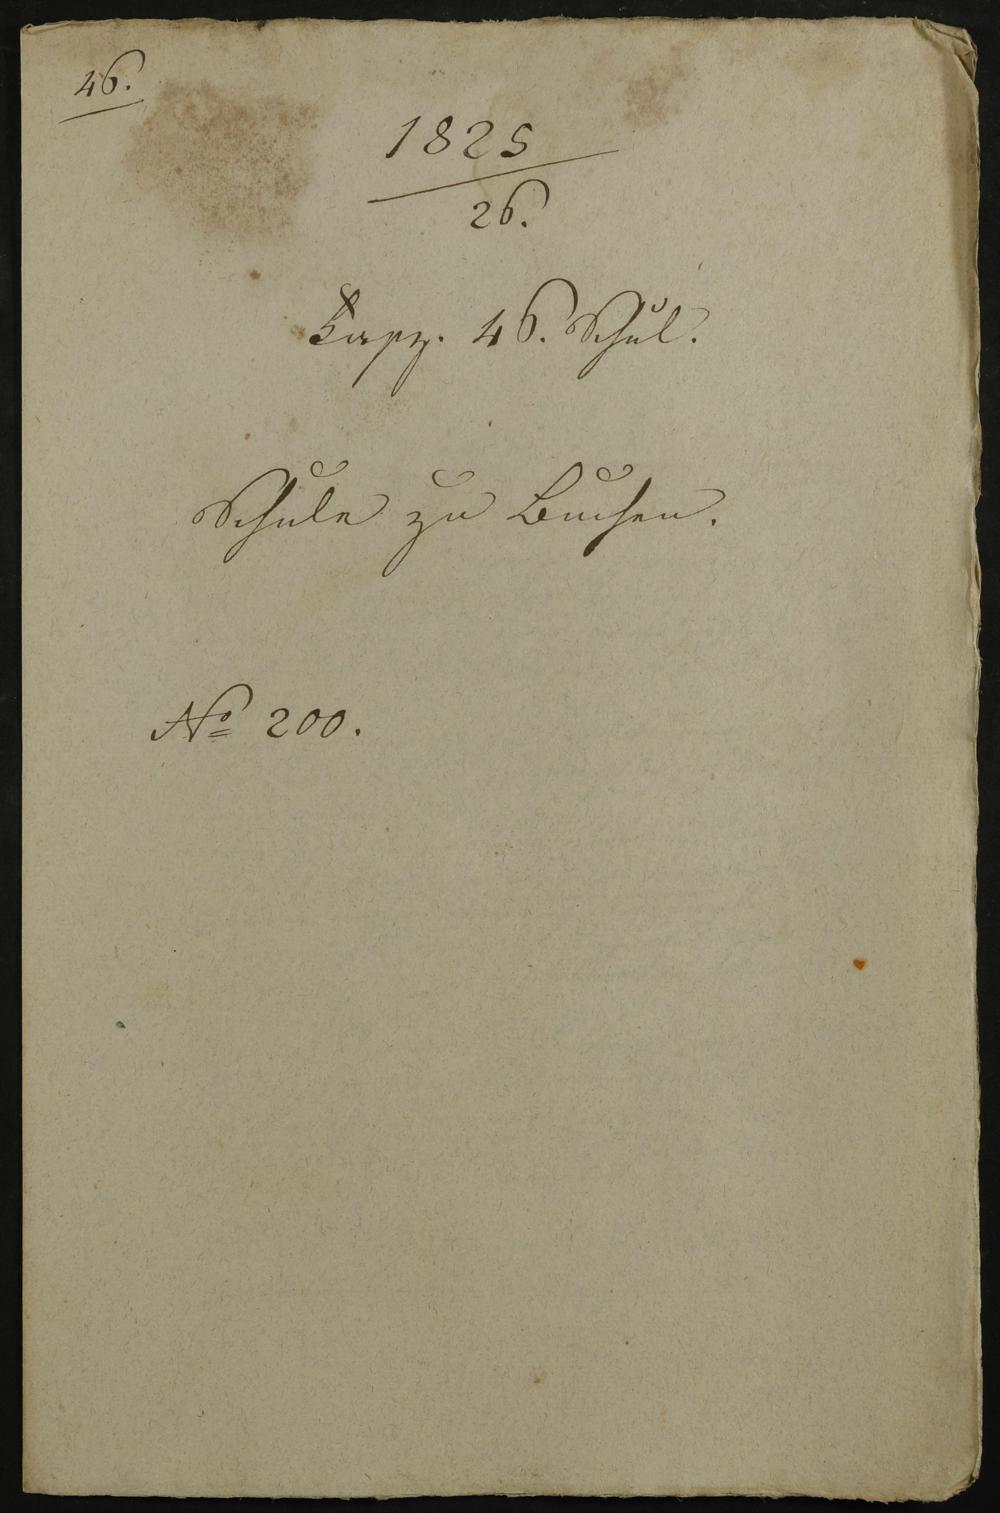 46.
1825
26.
Kapz. 46. Schul.
Schule zu Buchen.
No 200.